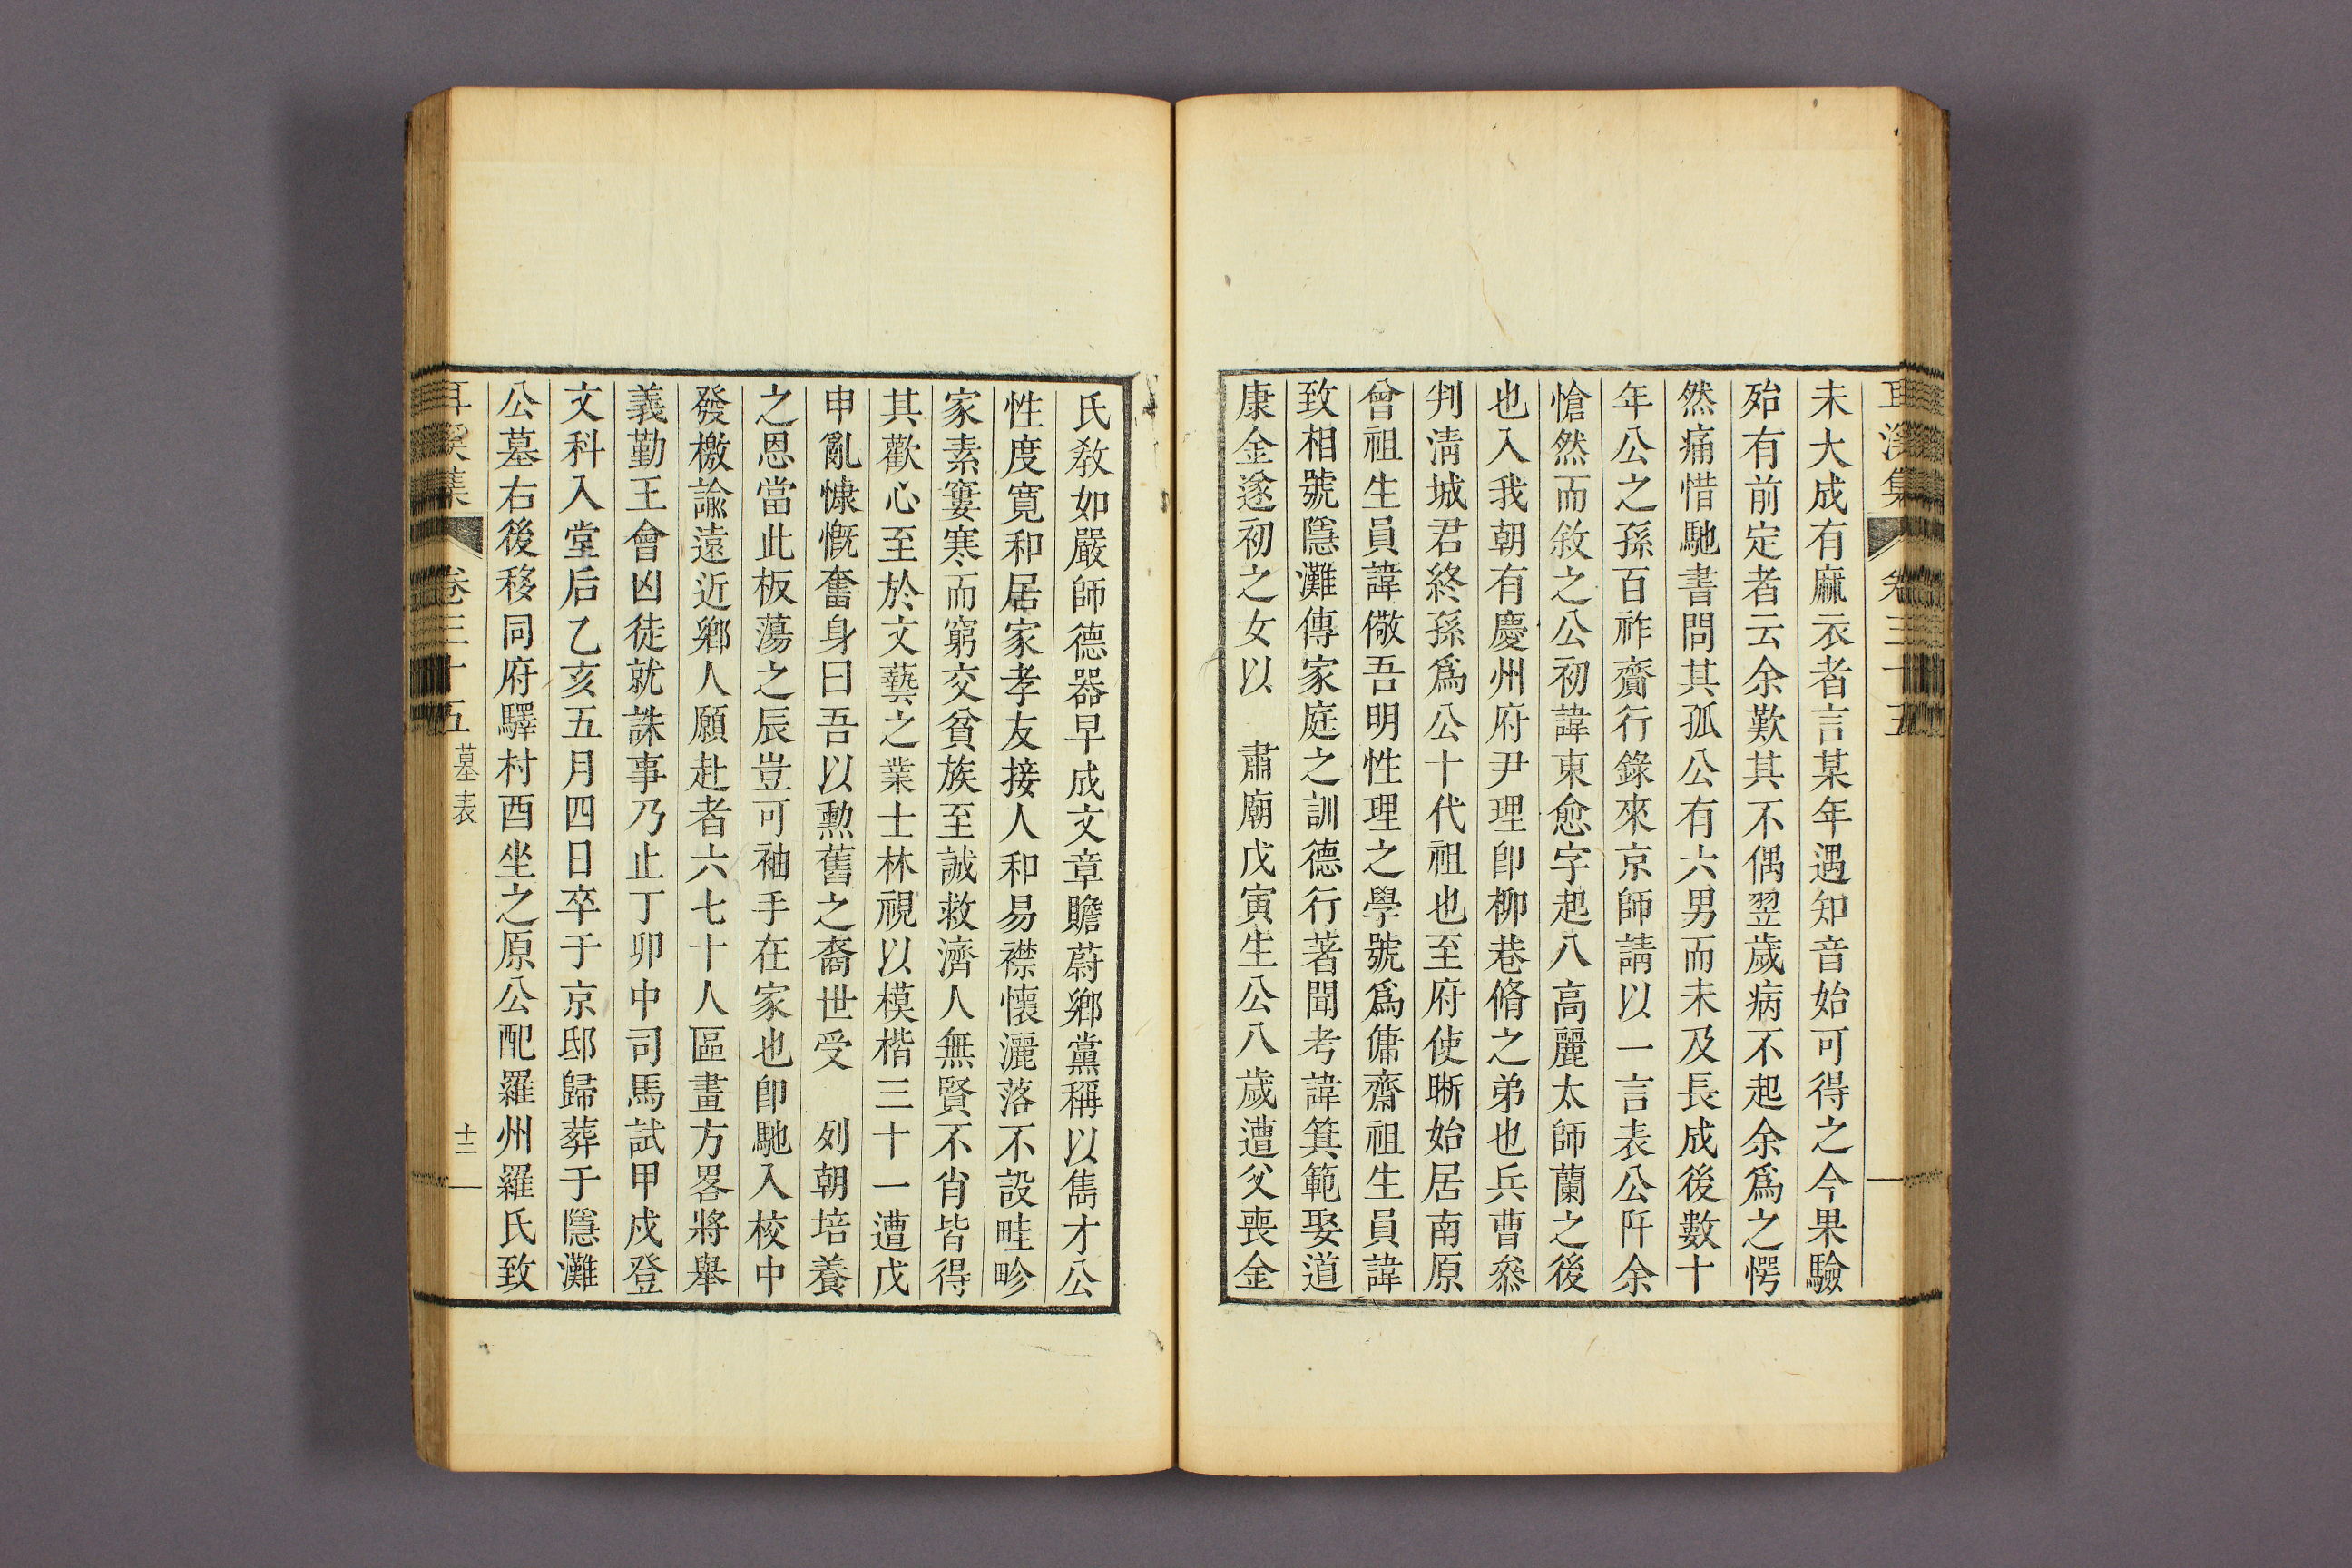 耳溪集 卷三十五
未大成有麻衣者言某年遇知音始可得之今果驗
殆有前定者云余歎其不偶翌歲病不起余爲之愕
然痛惜馳書問其孤公有六男而未及長成後數十
年公之孫百祚齎行錄來京師請以一言表公阡余
愴然而敘之公初諱東愈字起八高麗太師蘭之後
也入我朝有慶州府尹理卽柳巷脩之弟也兵曹叅
判淸城君終孫爲公十代祖也至府使晰始居南原
曾祖生員諱儆吾明性理之學號爲傭齋祖生員諱
致相號隱灘傳家庭之訓德行著聞考諱箕範娶道
康金遂初之女以 肅廟戊寅生公八歲遭父喪金
氏敎如嚴師德器早成文章贍蔚鄕黨稱以雋才公
性度寬和居家孝友接人和易襟懷灑落不設畦畛
家素窶寒而窮交貧族至誠救濟人無賢不肖皆得
其歡心至於文藝之業士林視以模楷三十一遭戊
申亂慷慨奮身曰吾以勳舊之裔世受 列朝培養
之恩當此板蕩之辰豈可袖手在家也卽馳入校中
發檄諭遠近鄕人願赴者六七十人區畫方畧將舉
義勤王會凶徒就誅事乃止丁卯中司馬試甲戌登
文科入堂后乙亥五月四日卒于京邸歸葬于隱灘
公墓右後移同府驛村酉坐之原公配羅州羅氏致
耳溪集 卷三十五 墓表 十三